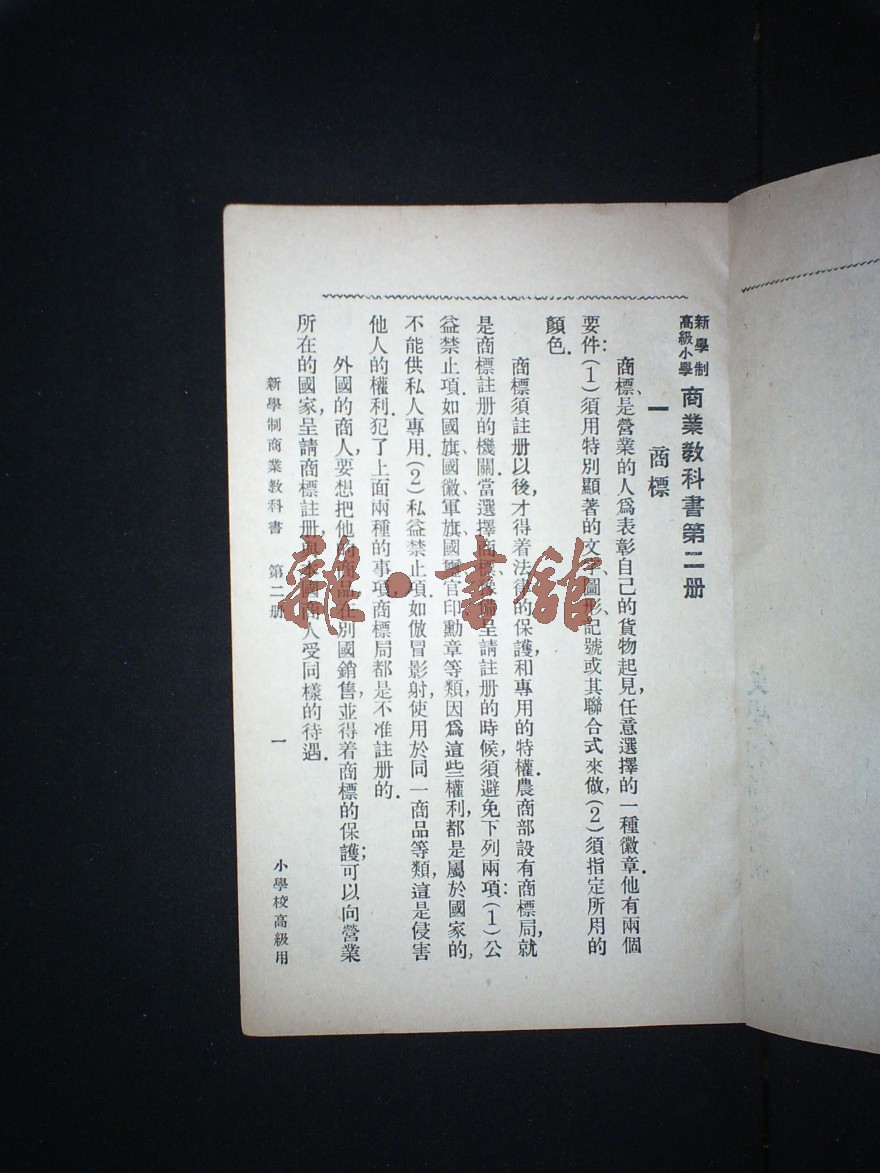 新學制
高級小學
商業教科書第二册
一 商標
商標、是營業的人爲表彰自己的貨物起見，任意選擇的一種徽章．他有兩個
要件：(1)須用特別顯著的文字、圖形、記號或其聯合式來做，(2)須指定所用的
顏色．
商標須註册以後，才得着法律的保護，和專用的特權．農商部設有商標局，就
是商標註册的機關．當選擇商標呈請註册的時候，須避免下列兩項：(1)公
益禁止項．如國旗、國徽、軍旗、國璽、官印、勳章等類，因爲這些權利，都是屬於國家的，
不能供私人專用．(2)私益禁止項．如倣冒影射，使用於同一商品等類，這是侵害
他人的權利．犯了上面兩種的事項，商標局都是不准註册的．
外國的商人，要想把他的商品在別國銷售，並得着商標的保護；可以向營業
所在的國家，呈請商標註册，與本國商人受同樣的待遇．
新學制商業教科書 第二册 一 小學校高級用
雜·書館